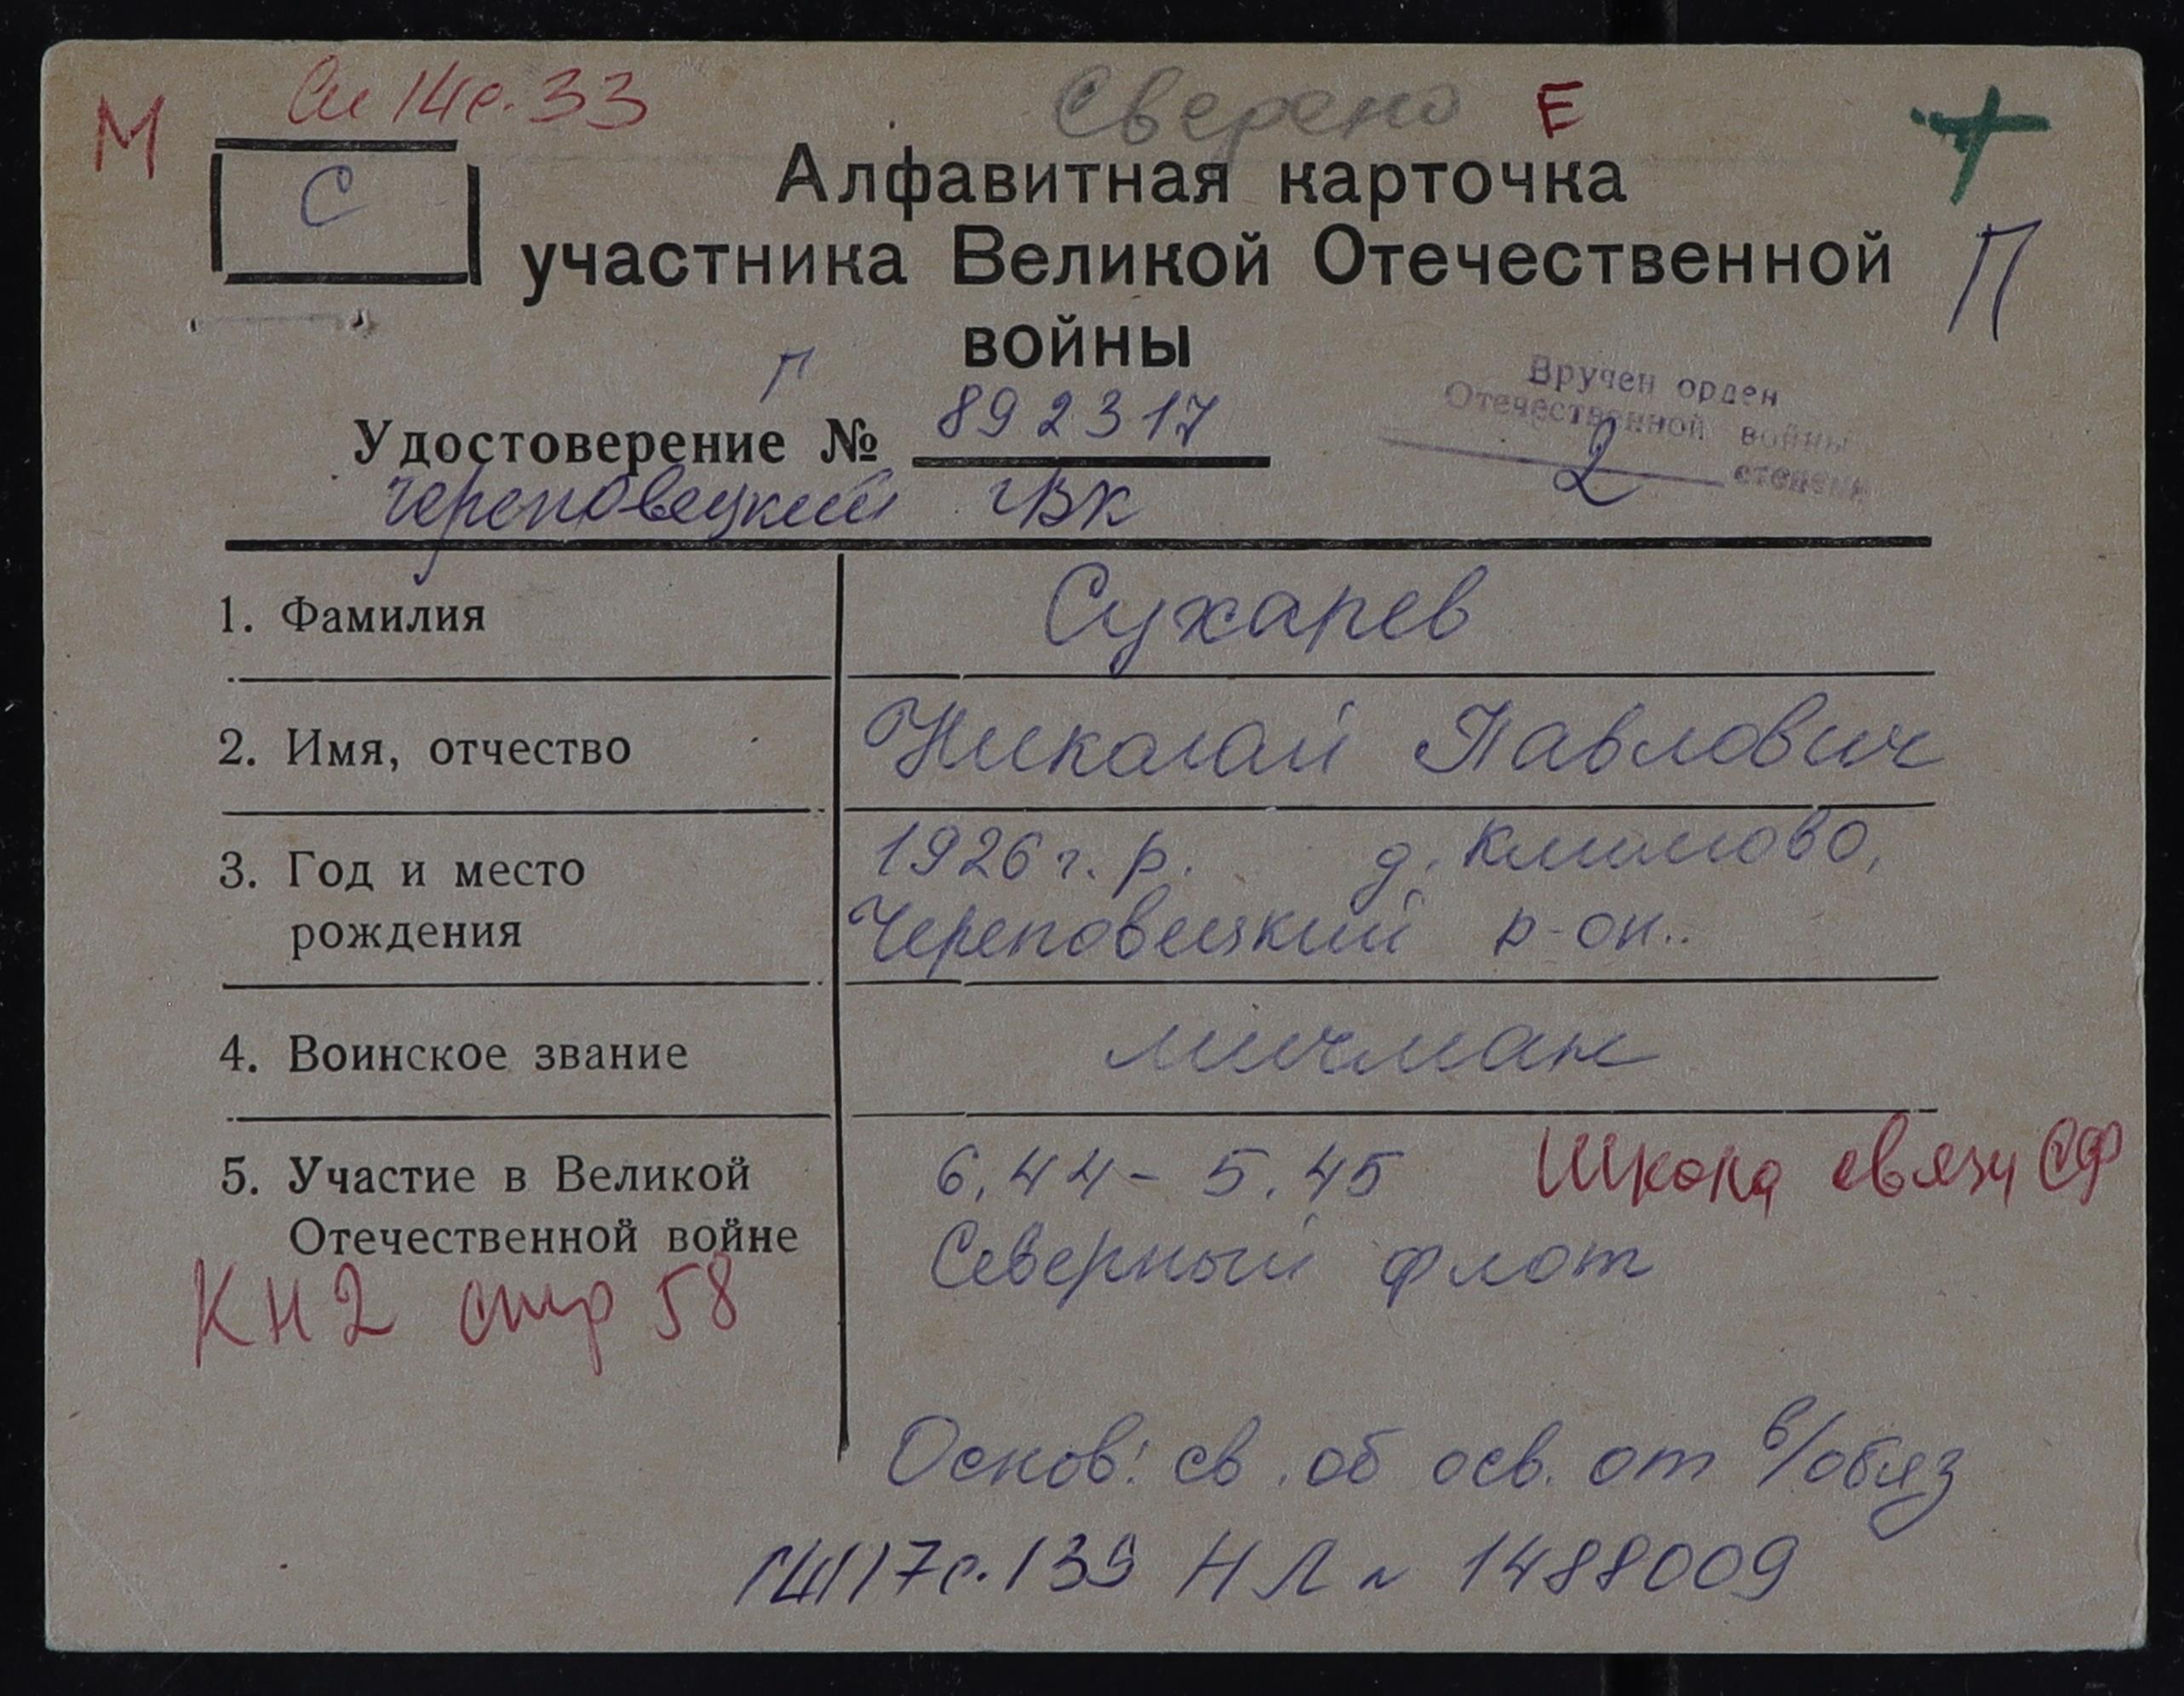 М
Сп 14 с. 33
Сверено
Е
С
Алфавитная карточка
участника Великой Отечественной
войны
П
П
Удостоверение № 892317
Череповецкий ГВК
Вручен орден
Отечественной войны
2 степени
1. Фамилия Сухарев
2. Имя, отчество Николай Павлович
3. Год и место 1926 г. р. д. Климово,
рождения Череповецкий р-он..
4. Воинское звание мичман
5. Участие в Великой 6.44 - 5.45 Школа связи СФ
Отечественной войне Северный флот
КН 2 стр 58
Основ: св. об осв. от в/обяз
17 с. 139 НЛ 1488009